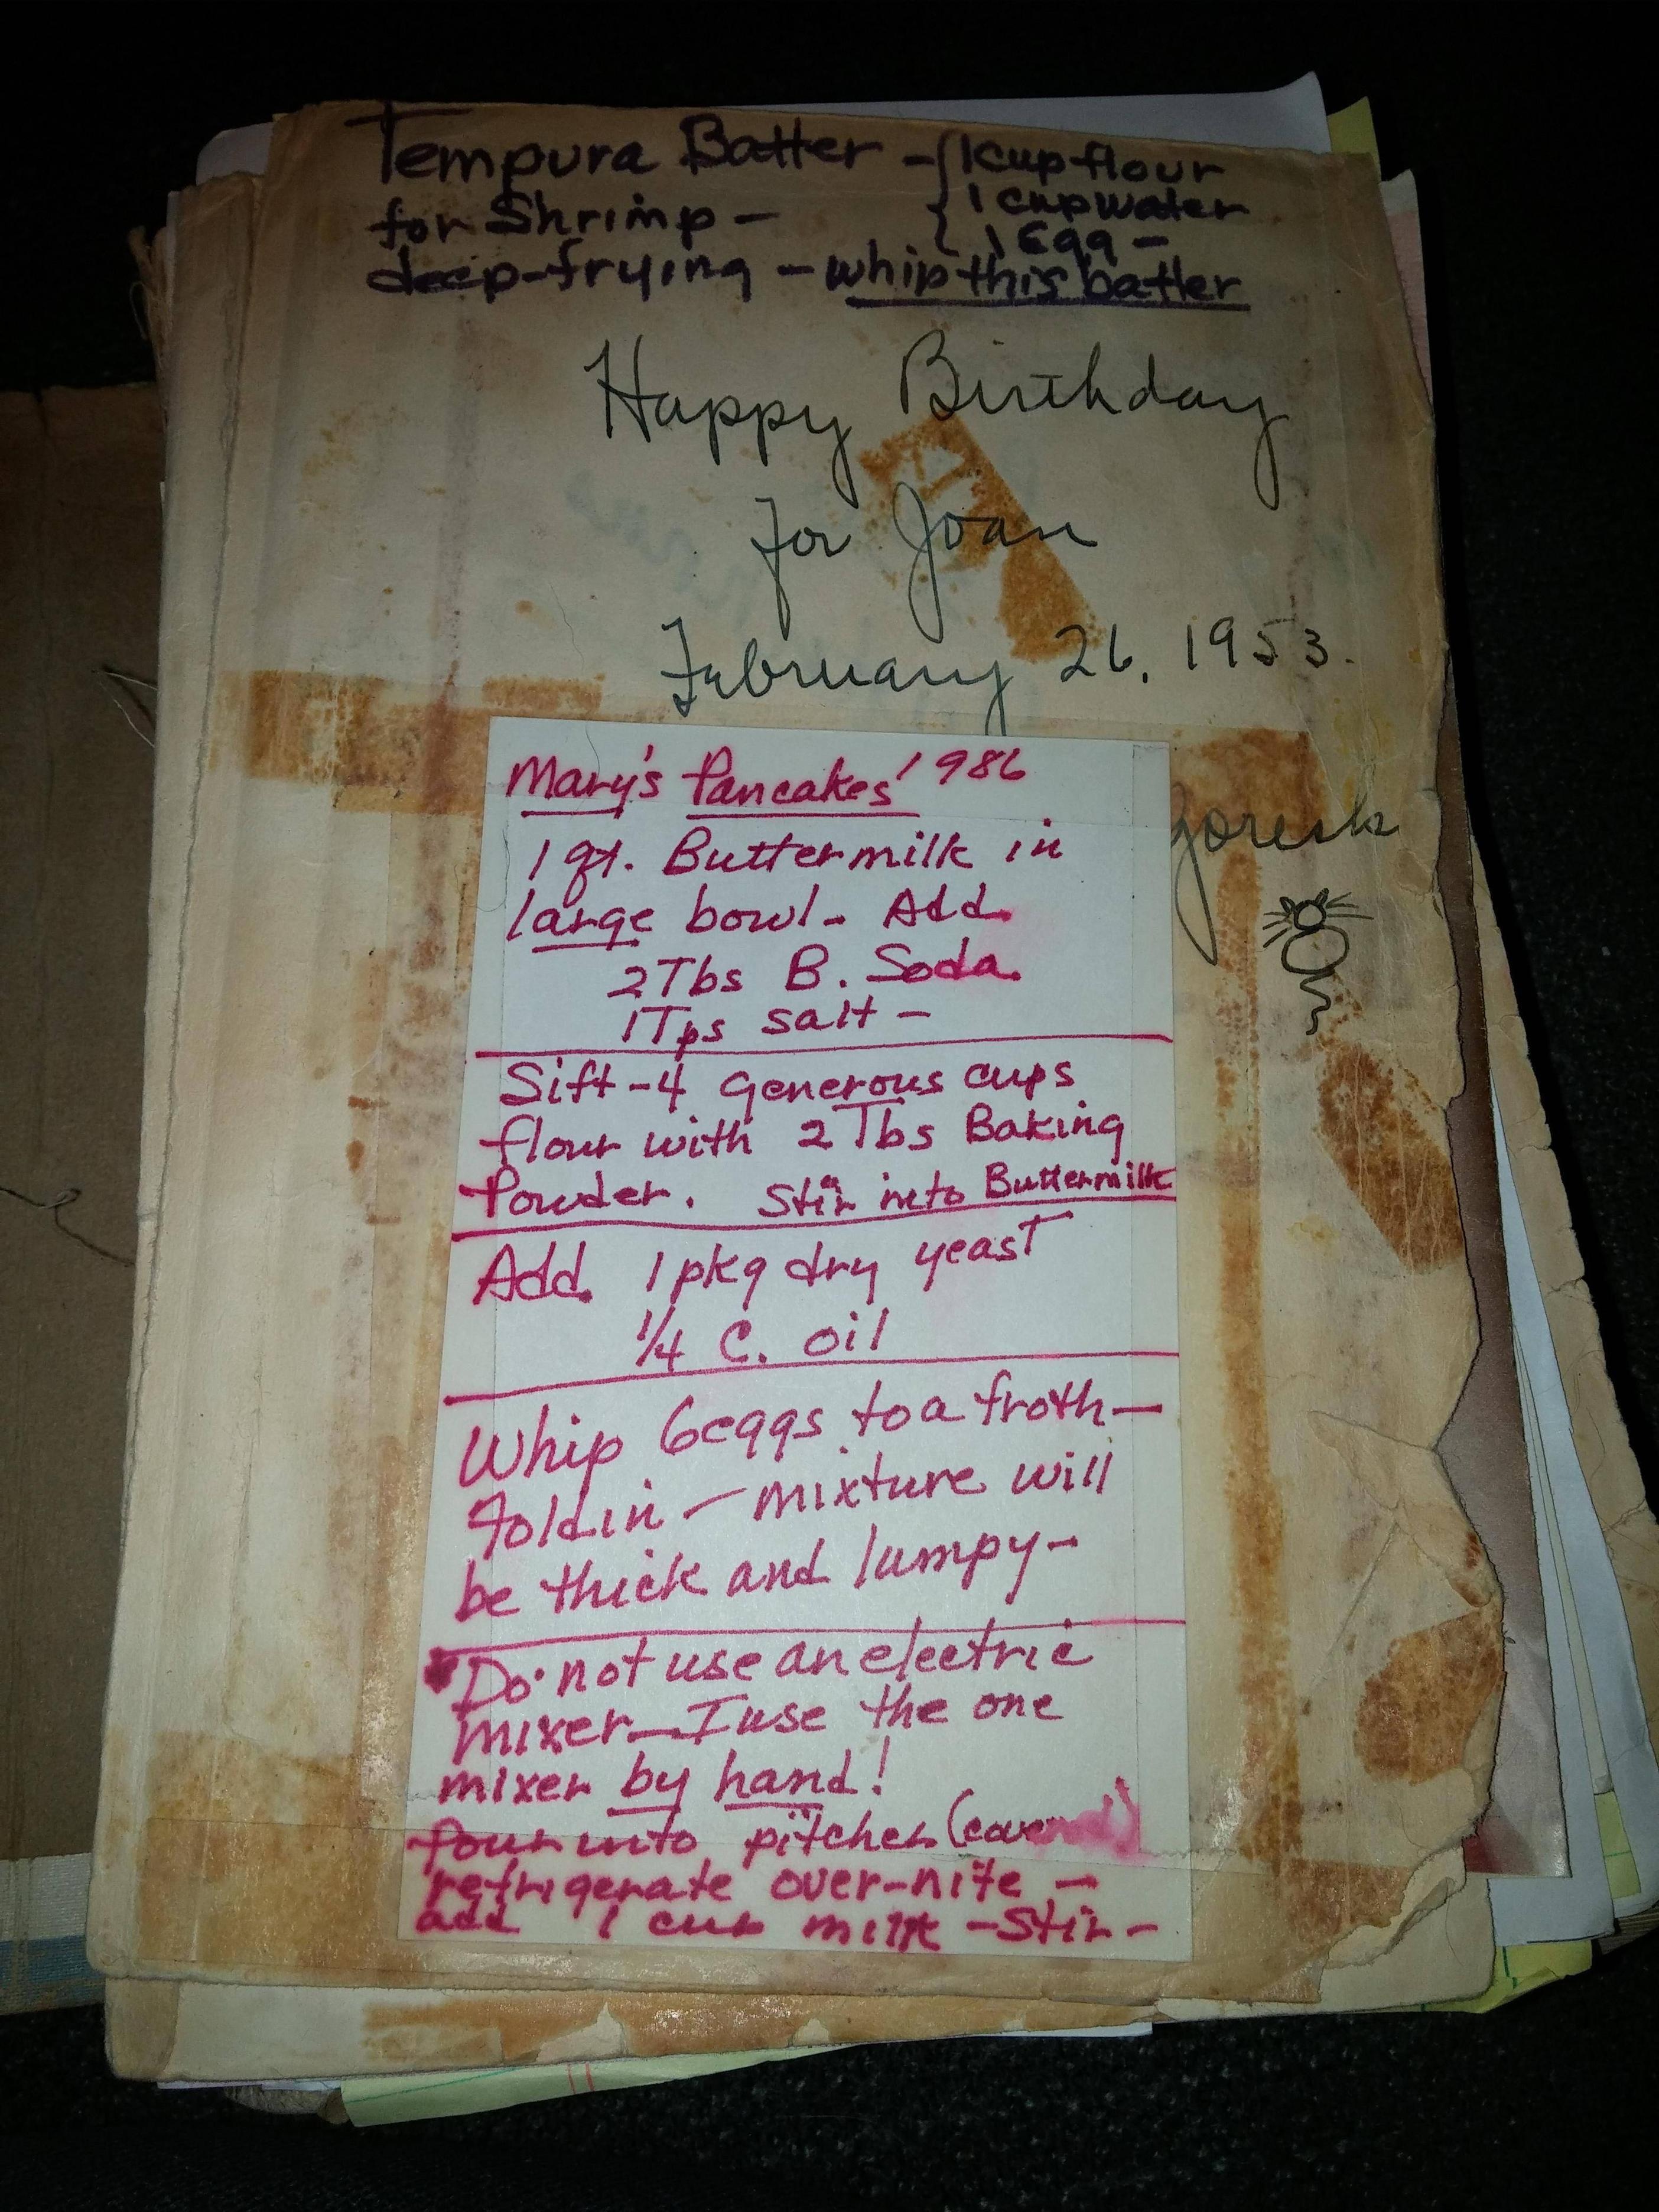 Tempura Batter - { 1 cup flour
for Shrimp - { 1 cup water
{ 1 Egg -
deep-frying - whip this batter
Happy Birthday
for Joan
February 26, 1953.
Mary's Pancakes 1986
1 qt. Buttermilk in
large bowl - Add
2 Tbs B. Soda
1 Tps salt -
Sift - 4 generous cups
flour with 2 Tbs Baking
Powder. Stir into Buttermilk
Add 1 pkg dry yeast
1/4 C. oil
Whip 6 eggs to a froth -
fold in - mixture will
be thick and lumpy -
Do not use an electric
mixer - I use the one
mixer by hand!
Pour into pitcher
refrigerate over-nite -
add 1 cup milk - Stir -